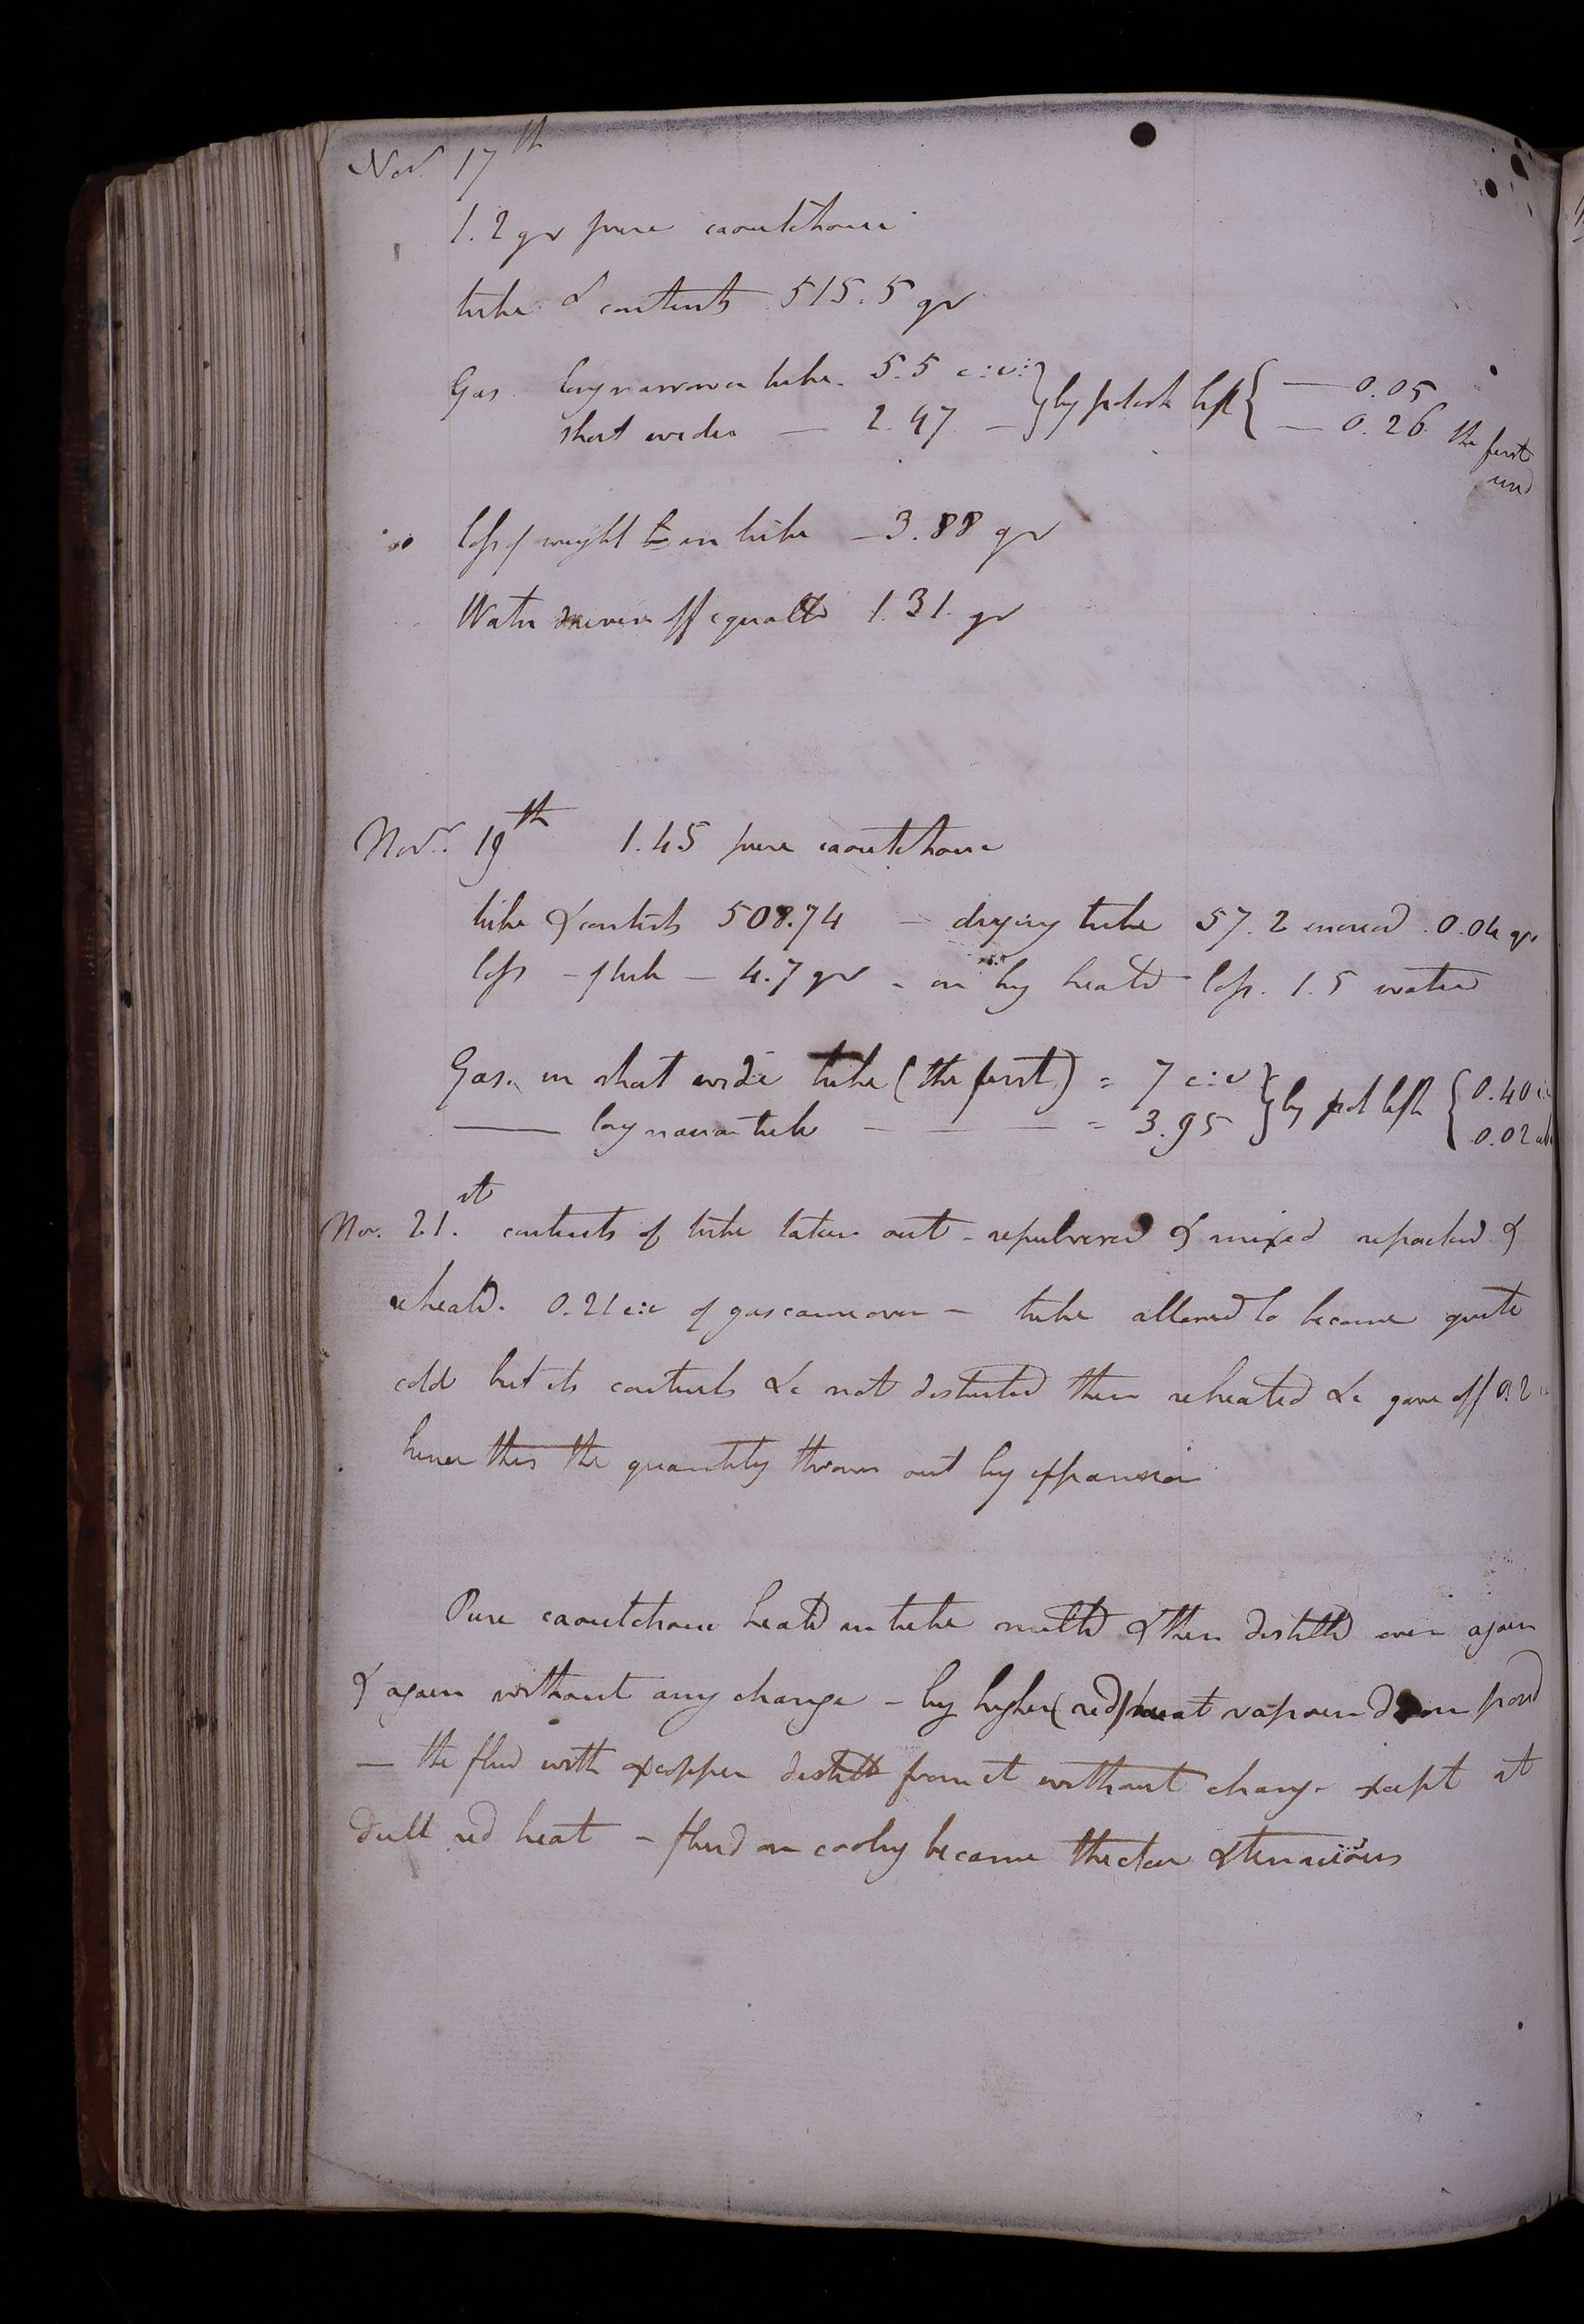 Nov 17th
1.2 gr pure caoutchouc
tube & contents 515.5 gr
Gas long narrower tube. 5.5 c:i: } by potash left { — 0.05
short wider — 2.47 — — 0.26 the first
used
loss of weight in tube — 3.88 gr
Water driven off equalled 1.31. gr
Novr. 19th 1.45 pure caoutchouc
tube & contents 508.74 — drying tube 57.2 increasd 0.04 gr
loss — of tube — 4.7 gr - on by heated loss. 1.5 water
Gas. in short wide tube (the first) = 7 c:i } by pot left { 0.40
—— long narrow tube — — — = 3.95 0.02
Nov. 21.st contents of tube taken out - repulverised & mixed repacked &
reheatd. 0.21 c:i of gas came over — tube allowed to become quite
cold but its contents &c not disturbed then reheated &c gave off 0.2
hence this the quantity thrown out by expansion
Pure caoutchouc heatd in tube melted & then distilled over again
& again without any change - by higher (red) heat vapour
— the fluid with copper distilled from it without change except at
dull red heat - fluid on cooling became thicker & tenacious